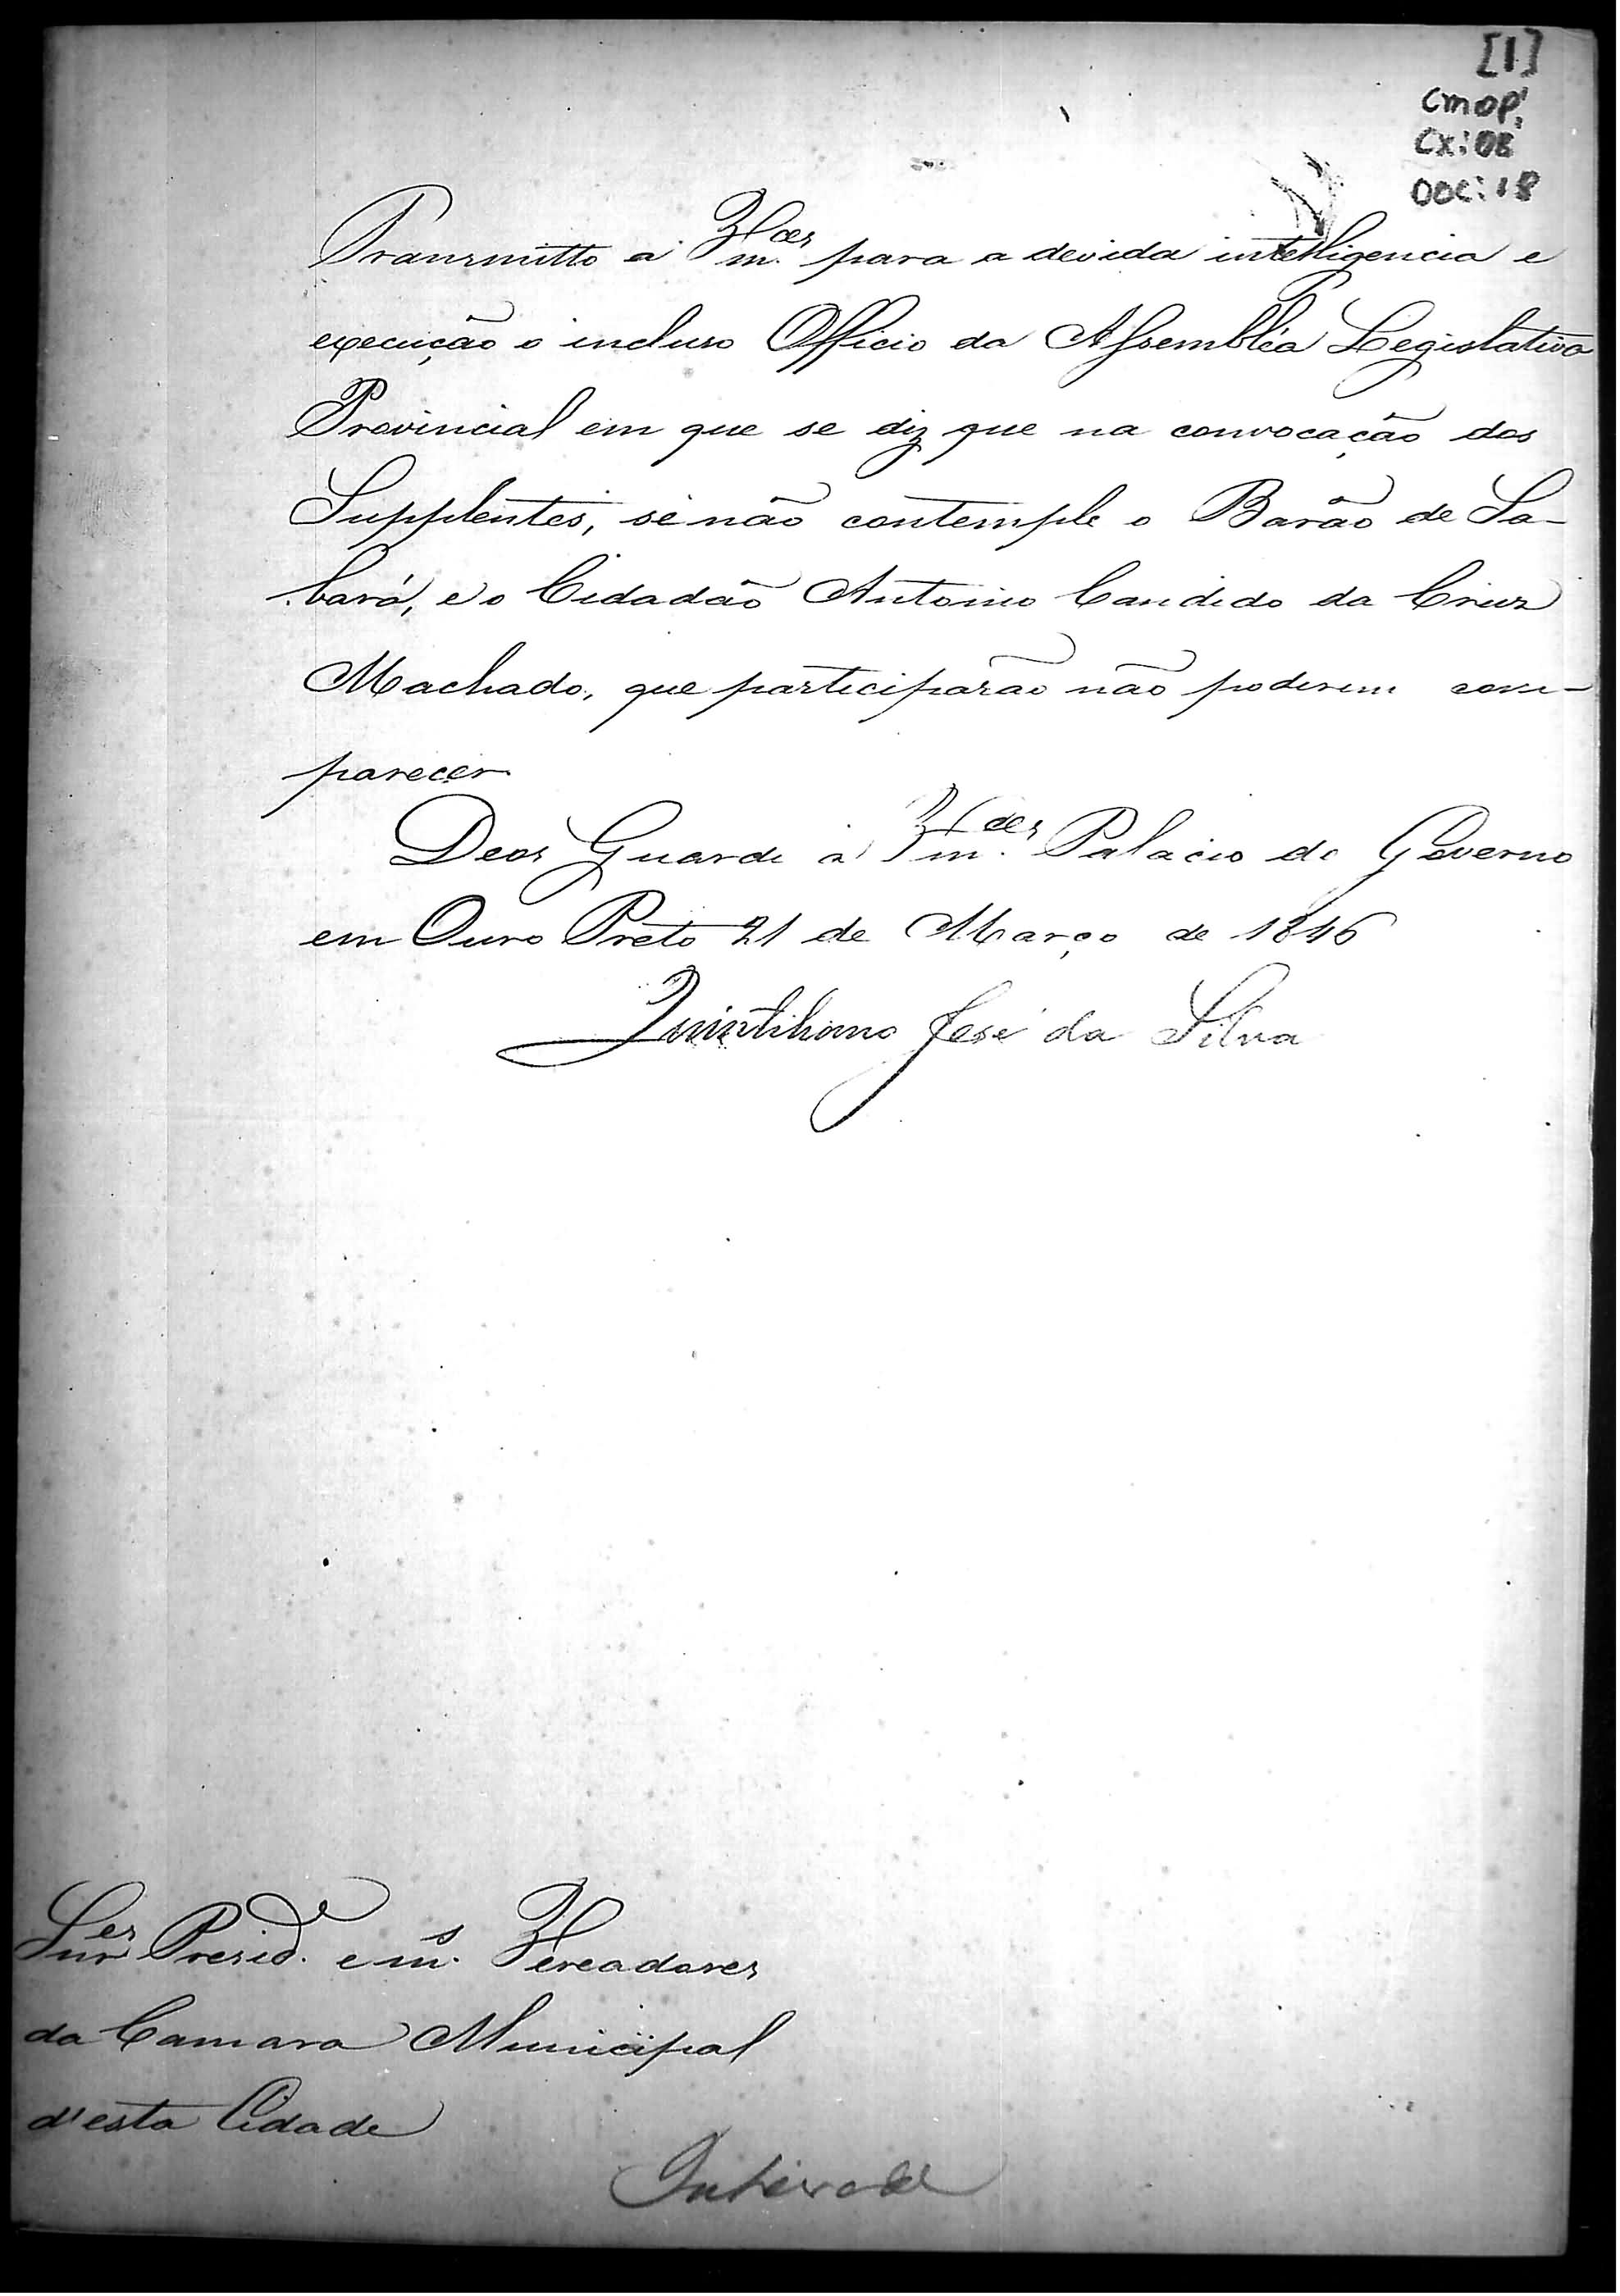 [1]
CMOP.
CX: 08
DOC: 18
Transmitto a Vm.ces para a devida intelligencia e
execução o incluso Officio da Assembléa Legislativa
Provincial em que se diz que na convocação dos
Supplentes, se não contemple o Barão de Sa-
bará, e o Cidadão Antonio Candido da Cruz
Machado, que participarão não poderem com-
parecer
Deos Guarde a Vm.ces Palacio do Governo
em Ouro Preto 21 de Março de 1846
Quintiliano José da Silva
Snr.es Presid.e e m.s Vereadores
da Camara Municipal
d'esta Cidade